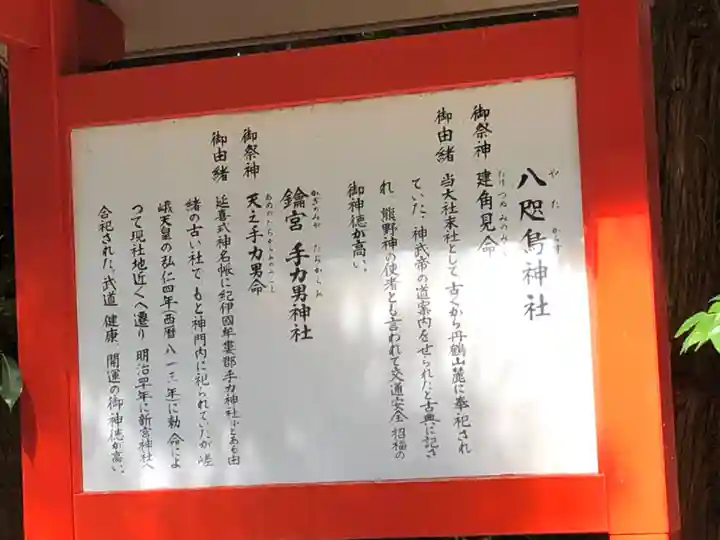 八咫烏神社
やたからす
御祭神 建角見命
たけつぬみのみこと
御由緒 当大社末社として古くから丹鶴山麓に奉祀され
ていた、神武帝の道案内をせられたと古典に記さ
れ、熊野神の使者とも言われて交通安全 招福の
御神徳が高い。
鑰宮 手力男神社
かぎのみや たぢからお
御祭神 天之手力男命
あめのたぢからおのみこと
御由緒 延喜式神名帳に紀伊國牟婁郡手力神社とある由
緒の古い社で もと神門内に祀られていたが 嵯
峨天皇の弘仁四年(西暦八一三年)に勅命によ
つて現社地近くへ遷り 明治早年に新宮神社へ
合祀された。武道 健康、開運の御神徳が高い。